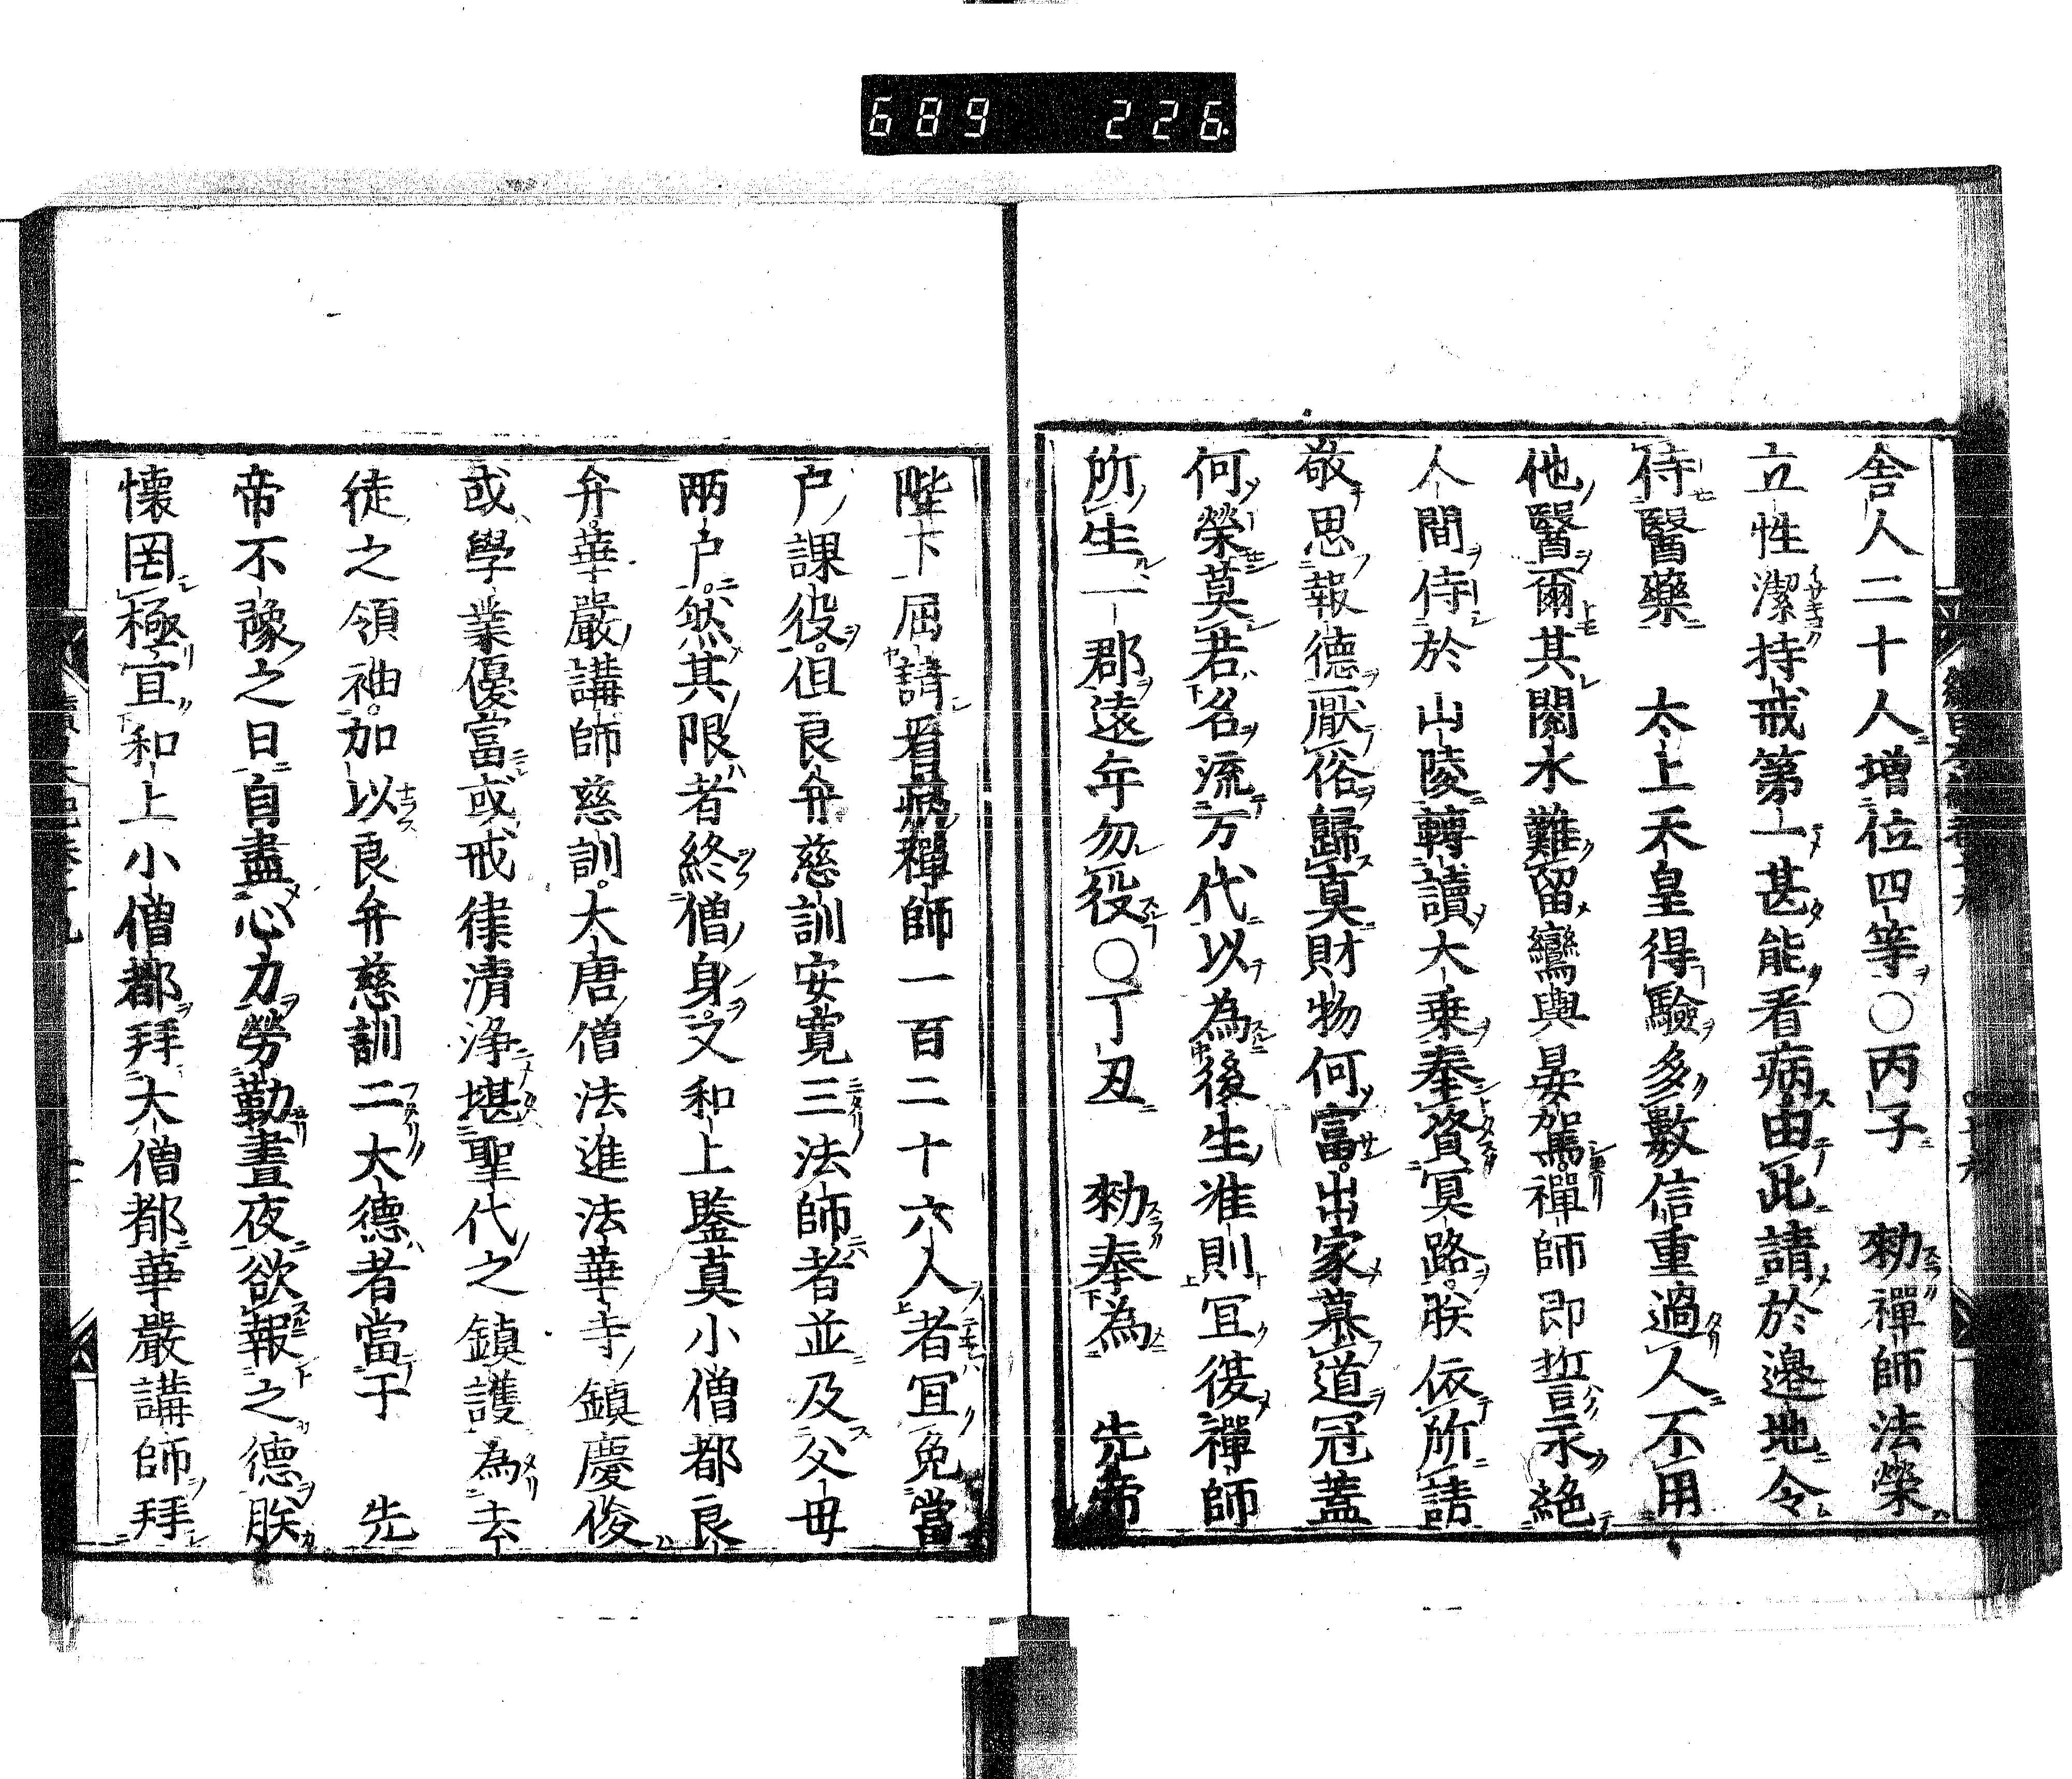 689 226
舎人二十人増位四等○丙子 勅禪師法榮
立性潔持戒第一甚能看病由此請於邉地令
侍醫藥 太上天皇得驗多數信重過人不用
他醫爾其閱水難留鸞輿晏駕禪師即誓永絶
人間侍於山陵轉讀大乗奉資冥路朕依所請
敬思報德厭俗歸真財物何富出家慕道冠蓋
何榮莫若名流万代以為後生准則宜復禪師
所生一郡遠年勿役○丁丑 勅奉為 先帝
陛下屈請看病禪師一百二十六人者宜免當
户課役但良弁慈訓安寛三法師者並及父母
兩户然其限者終僧身又和上鑒真小僧都良
弁華嚴講師慈訓大唐僧法進法華寺鎮慶俊
或學業優富或戒律清浄堪聖代之鎮護為去
徒之領袖加以良弁慈訓二大德者當于 先
帝不豫之日自盡心力勞勤晝夜欲報之德朕
懐罔極宜和上小僧都拜大僧都華嚴講師拜